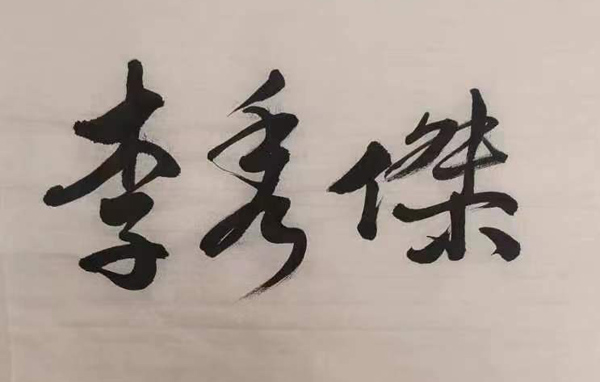 李秀傑